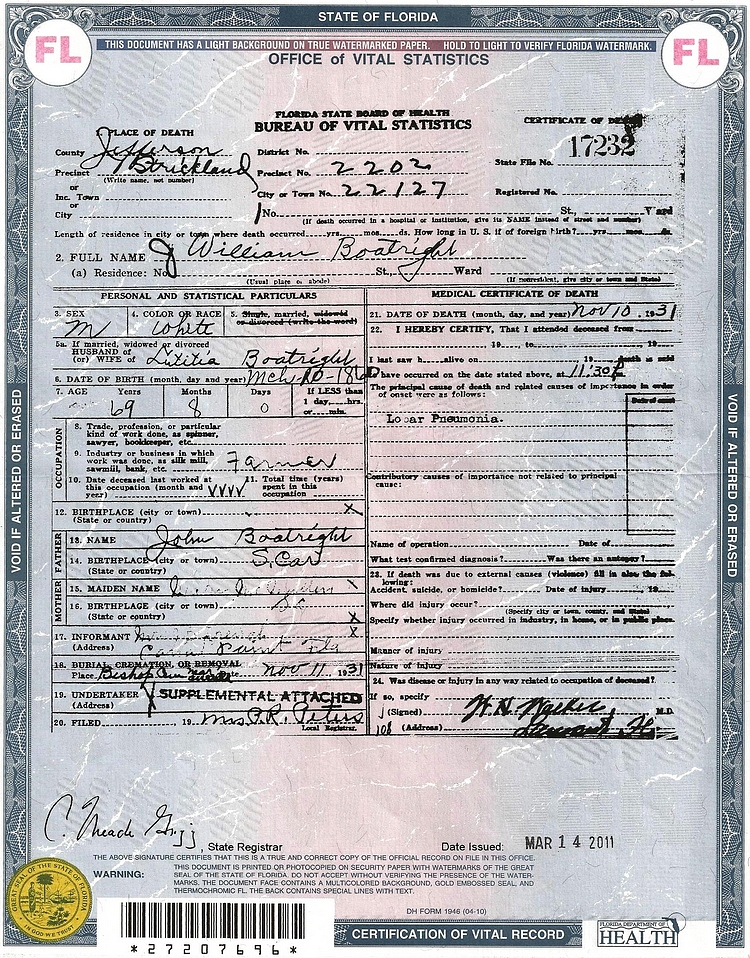 STATE OF FLORIDA
FL
FL
THIS DOCUMENT HAS A LIGHT BACKGROUND ON TRUE WATERMARKED PAPER. HOLD TO LIGHT TO VERIFY FLORIDA WATERMARK.
OFFICE of VITAL STATISTICS
VOID IF ALTERED OR ERASED
VOID IF ALTERED OR ERASED
FLORIDA STATE BOARD OF HEALTH
BUREAU OF VITAL STATISTICS
CERTIFICATE OF DEATH
PLACE OF DEATH
County Jefferson
District No.
State File No. 17232
Precinct Strickland
(Write name, not number)
Precinct No. 2202
or
Inc. Town
City or Town No. 22127
Registered No.
or
City
No. St., Ward
(If death occurred in a hospital or institution, give its NAME instead of street and number)
Length of residence in city or town where death occurred yrs. mos. ds. How long in U. S. if of foreign birth? yrs. mos. ds.
2. FULL NAME J William Boatright
(a) Residence: No. St., Ward
(Usual place of abode) (If nonresident, give city or town and State)
PERSONAL AND STATISTICAL PARTICULARS
3. SEX 4. COLOR OR RACE 5. Single, married, widowed
or divorced (write the word)
M White
5a. If married, widowed or divorced
HUSBAND of
(or) WIFE of Lutitia Boatright
6. DATE OF BIRTH (month, day, and year) Mch 10-186
7. AGE Years Months Days If LESS than
1 day, hrs.
or min.
69 8 0
OCCUPATION
8. Trade, profession, or particular
kind of work done, as spinner,
sawyer, bookkeeper, etc.
9. Industry or business in which
work was done, as silk mill,
sawmill, bank, etc. Farmer
10. Date deceased last worked at
this occupation (month and
year) VVVV
11. Total time (years)
spent in this
occupation
12. BIRTHPLACE (city or town) X
(State or country)
FATHER
13. NAME John Boatright
14. BIRTHPLACE (city or town) S. Car
(State or country)
MOTHER
15. MAIDEN NAME
16. BIRTHPLACE (city or town) SC
(State or country) X
17. INFORMANT X
(Address) Fla
18. BURIAL, CREMATION, OR REMOVAL
Place Bishop Nov 11 1931
19. UNDERTAKER SUPPLEMENTAL ATTACHED
(Address)
20. FILED 19 Mrs. P.R. Peters
Local Registrar.
MEDICAL CERTIFICATE OF DEATH
21. DATE OF DEATH (month, day, and year) Nov 10, 1931
22. I HEREBY CERTIFY, That I attended deceased from
19 to 19
I last saw h alive on 19 death is said
to have occurred on the date stated above, at 11:30 P
The principal cause of death and related causes of importance in order
of onset were as follows:
Date of onset
Lobar Pneumonia.
Contributory causes of importance not related to principal
cause:
Name of operation Date of
What test confirmed diagnosis? Was there an autopsy?
23. If death was due to external causes (violence) fill in also the following:
Accident, suicide, or homicide? Date of injury 19
Where did injury occur?
(Specify city or town, county, and State)
Specify whether injury occurred in industry, in home, or in public place.
Manner of injury
Nature of injury
24. Was disease or injury in any way related to occupation of deceased?
If so, specify
(Signed) W. H. Walker M.D.
108 (Address) Lamont, Fla
C. Meade Grigg, State Registrar
Date Issued: MAR 14 2011
THE ABOVE SIGNATURE CERTIFIES THAT THIS IS A TRUE AND CORRECT COPY OF THE OFFICIAL RECORD ON FILE IN THIS OFFICE.
WARNING:
THIS DOCUMENT IS PRINTED OR PHOTOCOPIED ON SECURITY PAPER WITH WATERMARKS OF THE GREAT
SEAL OF THE STATE OF FLORIDA. DO NOT ACCEPT WITHOUT VERIFYING THE PRESENCE OF THE WATER-
MARKS. THE DOCUMENT FACE CONTAINS A MULTICOLORED BACKGROUND, GOLD EMBOSSED SEAL, AND
THERMOCHROMIC FL. THE BACK CONTAINS SPECIAL LINES WITH TEXT.
GREAT SEAL OF THE STATE OF FLORIDA
IN GOD WE TRUST
DH FORM 1946 (04-10)
*27207696*
CERTIFICATION OF VITAL RECORD
FLORIDA DEPARTMENT OF
HEALTH